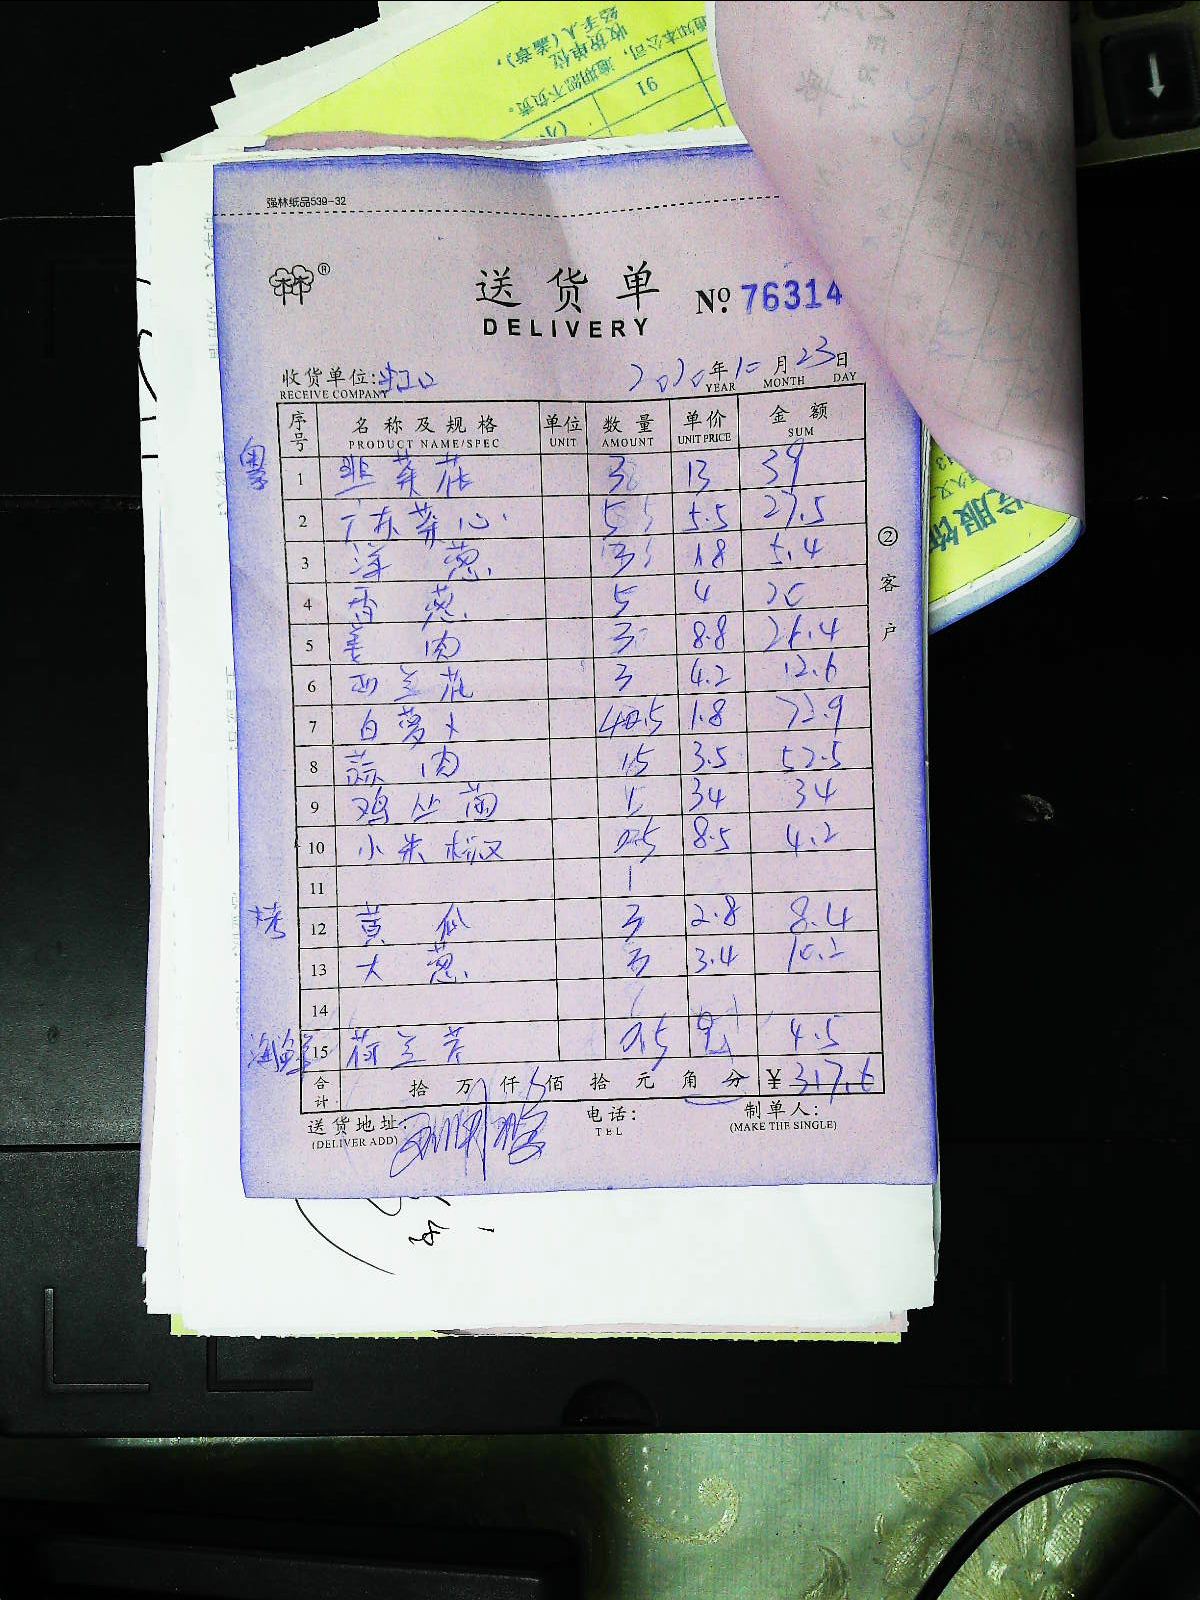 强林纸品539-32
送货单
DELIVERY
№ 76314
收货单位:虹口 2020年10月23日
RECEIVE COMPANY YEAR MONTH DAY
序号 名称及规格 单位 数量 单价 金额
PRODUCT NAME/SPEC UNIT AMOUNT UNIT PRICE SUM
粤 1 韭菜花 3 13 39
2 广东菜心 5 5.5 27.5
3 洋葱 3 1.8 5.4
4 香葱 5 4 20
5 姜肉 3 8.8 26.4
6 西兰花 3 4.2 12.6
7 白萝卜 40.5 1.8 72.9
8 蒜肉 15 3.5 52.5
9 鸡丛菌 1 34 34
10 小米椒 0.5 8.5 4.2
11
烤 12 黄瓜 3 2.8 8.4
13 大葱 3 3.4 10.2
14
海鲜 15 荷兰芹 0.5 9 4.5
合计 拾 万 仟 佰 拾 元 角 分 ¥ 317.6
送货地址: 电话: 制单人:
(DELIVER ADD) TEL (MAKE THE SINGLE)
②客户